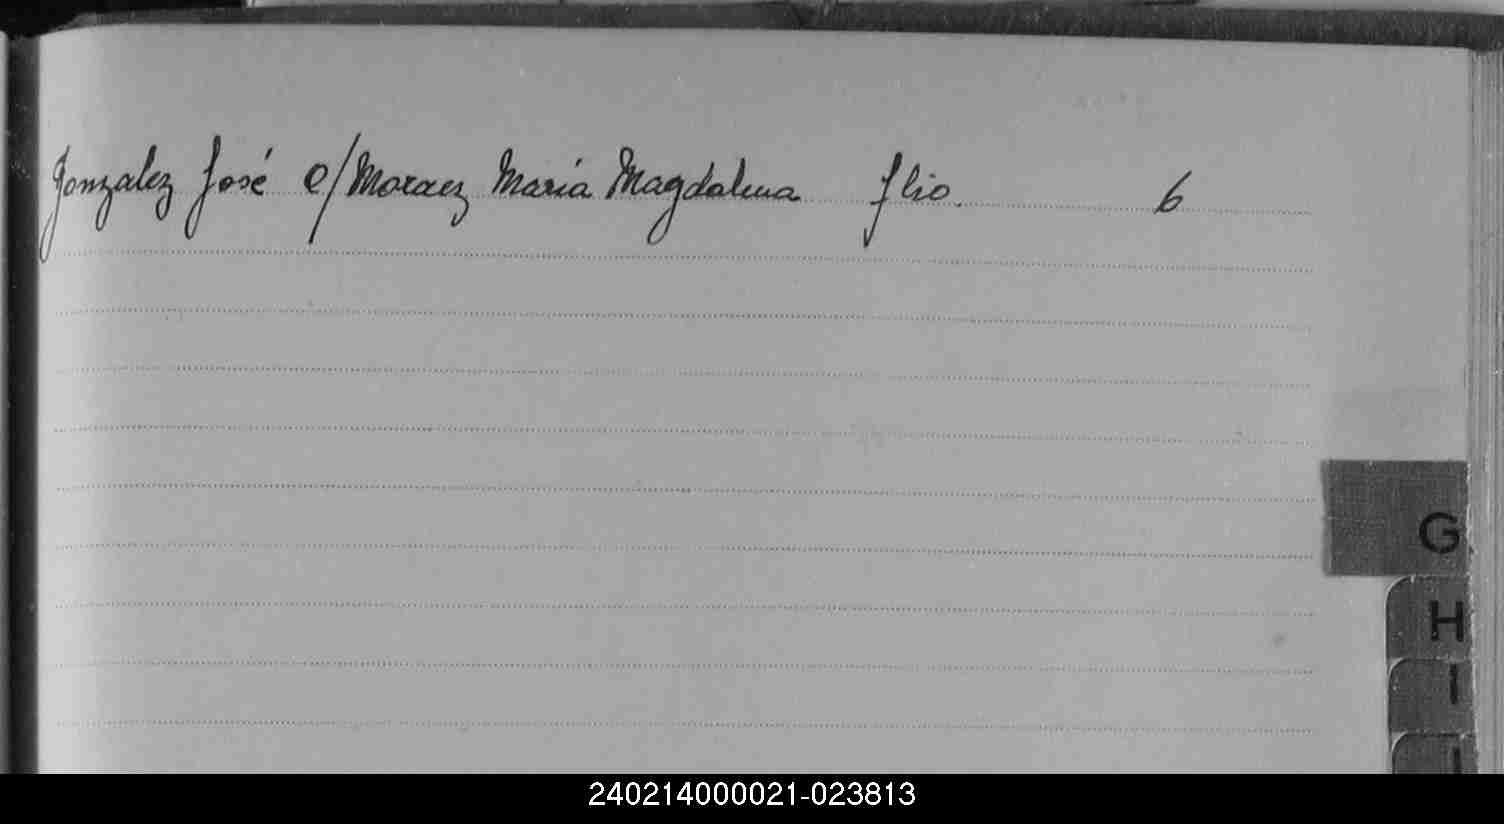 Gonzalez José c/ Moraez María Magdalena flio. 6
G
H
I
240214000021-023813